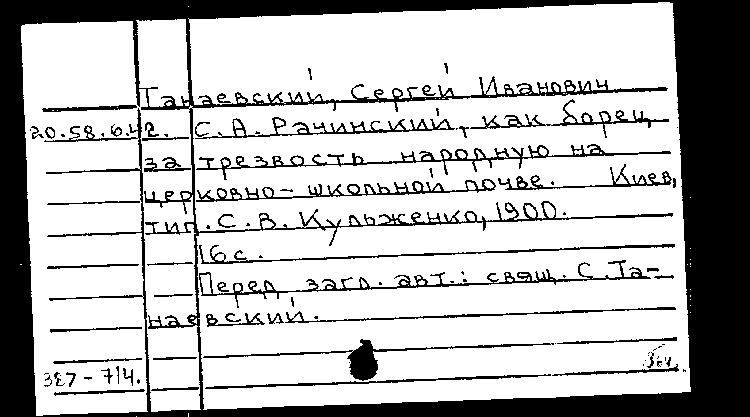 Танаевский, Сергей Иванович
20.58.6.42. С.А. Рачинский, как борец
за трезвость народную на
церковно-школьной почве. Киев,
тип. С.В. Кульженко, 1900.
16 с.
Перед загл. авт.: свящ. С. Та-
наевский.
327-714.